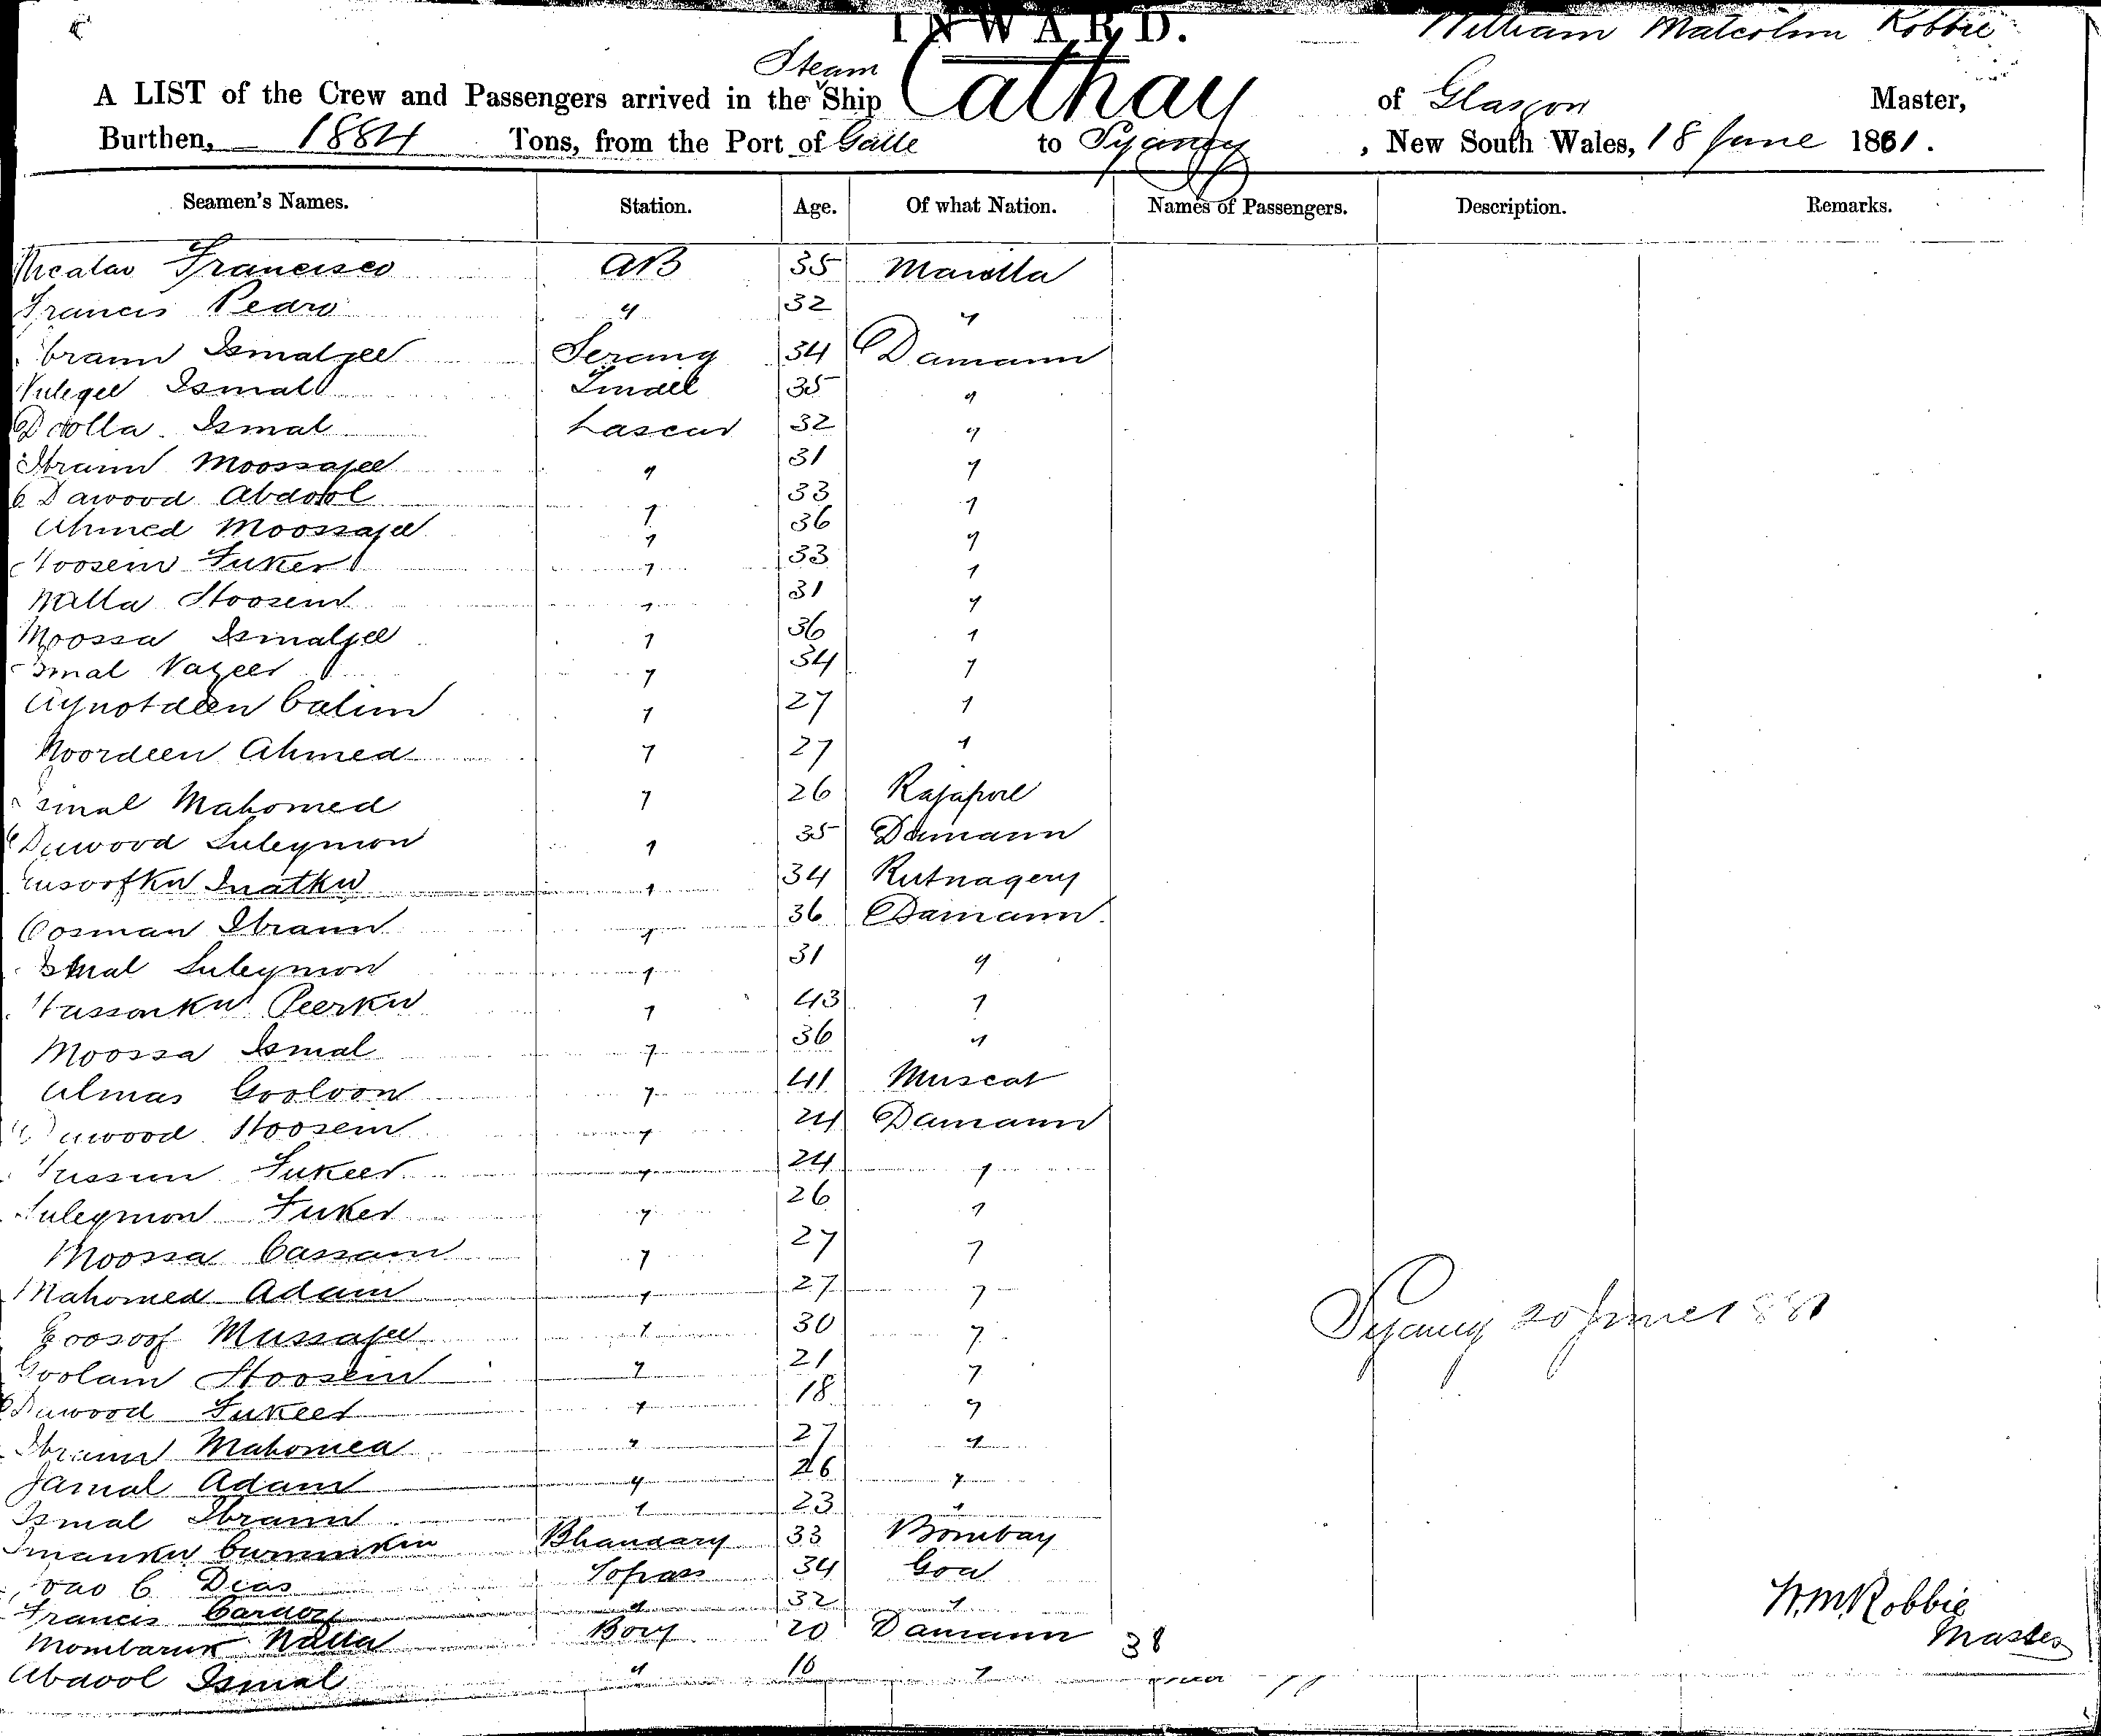 INWARD.
William Malcolm Robbie
Steam
A LIST of the Crew and Passengers arrived in the Ship Cathay of Glasgow Master,
Burthen, 1884 Tons, from the Port of Galle to Sydney, New South Wales, 18 June 1881.
Seamen's Names. Station. Age. Of what Nation. Names of Passengers. Description. Remarks.
Francisco AB 35 Manilla
Francis Pedro " 32 "
Ismaljee Serang 34 Damaun
Ismal Tindel 35 "
Ismal Lascar 32 "
Ibraim Moossajee " 31 "
Dawood Abdool " 33 "
Ahmed Moossajee " 36 "
Hoosein Fuker " 33 "
Nalla Hoosein " 31 "
Moossa Ismaljee " 36 "
Ismal Vazeer " 34 "
Calim " 27 "
Noordeen Ahmed " 27 "
Ismal Mahomed " 26 Rajapore
Dawood Suleymon " 35 Damaun
" 34 Rutnagery
Oosman Ibraim " 36 Damaun
Ismal Suleymon " 31 "
Peerku " 43 "
Moossa Ismal " 36 "
Almas Gooloon " 41 Muscat
Dawood Hoosein " 24 Damaun
Fukeer " 24 "
Suleymon Fuker " 26 "
Moossa Cassam " 27 "
Mahomed Adam " 27 "
Eoosoof Mussajee " 30 "
Goolam Hoosein " 21 "
Dawood Fukeer " 18 "
Ibraim Mahomed " 27 "
Jamal Adam " 26 "
Ismal Ibraim " 23 "
Bhandary 33 Bombay
Joao C Dias Topass 34 Goa
Francis Cardoz " 32 "
Mombaruk Nalla Boy 20 Damaun
Abdool Ismal " 16 "
38
Sydney 20 June 1881
W.M. Robbie
Master